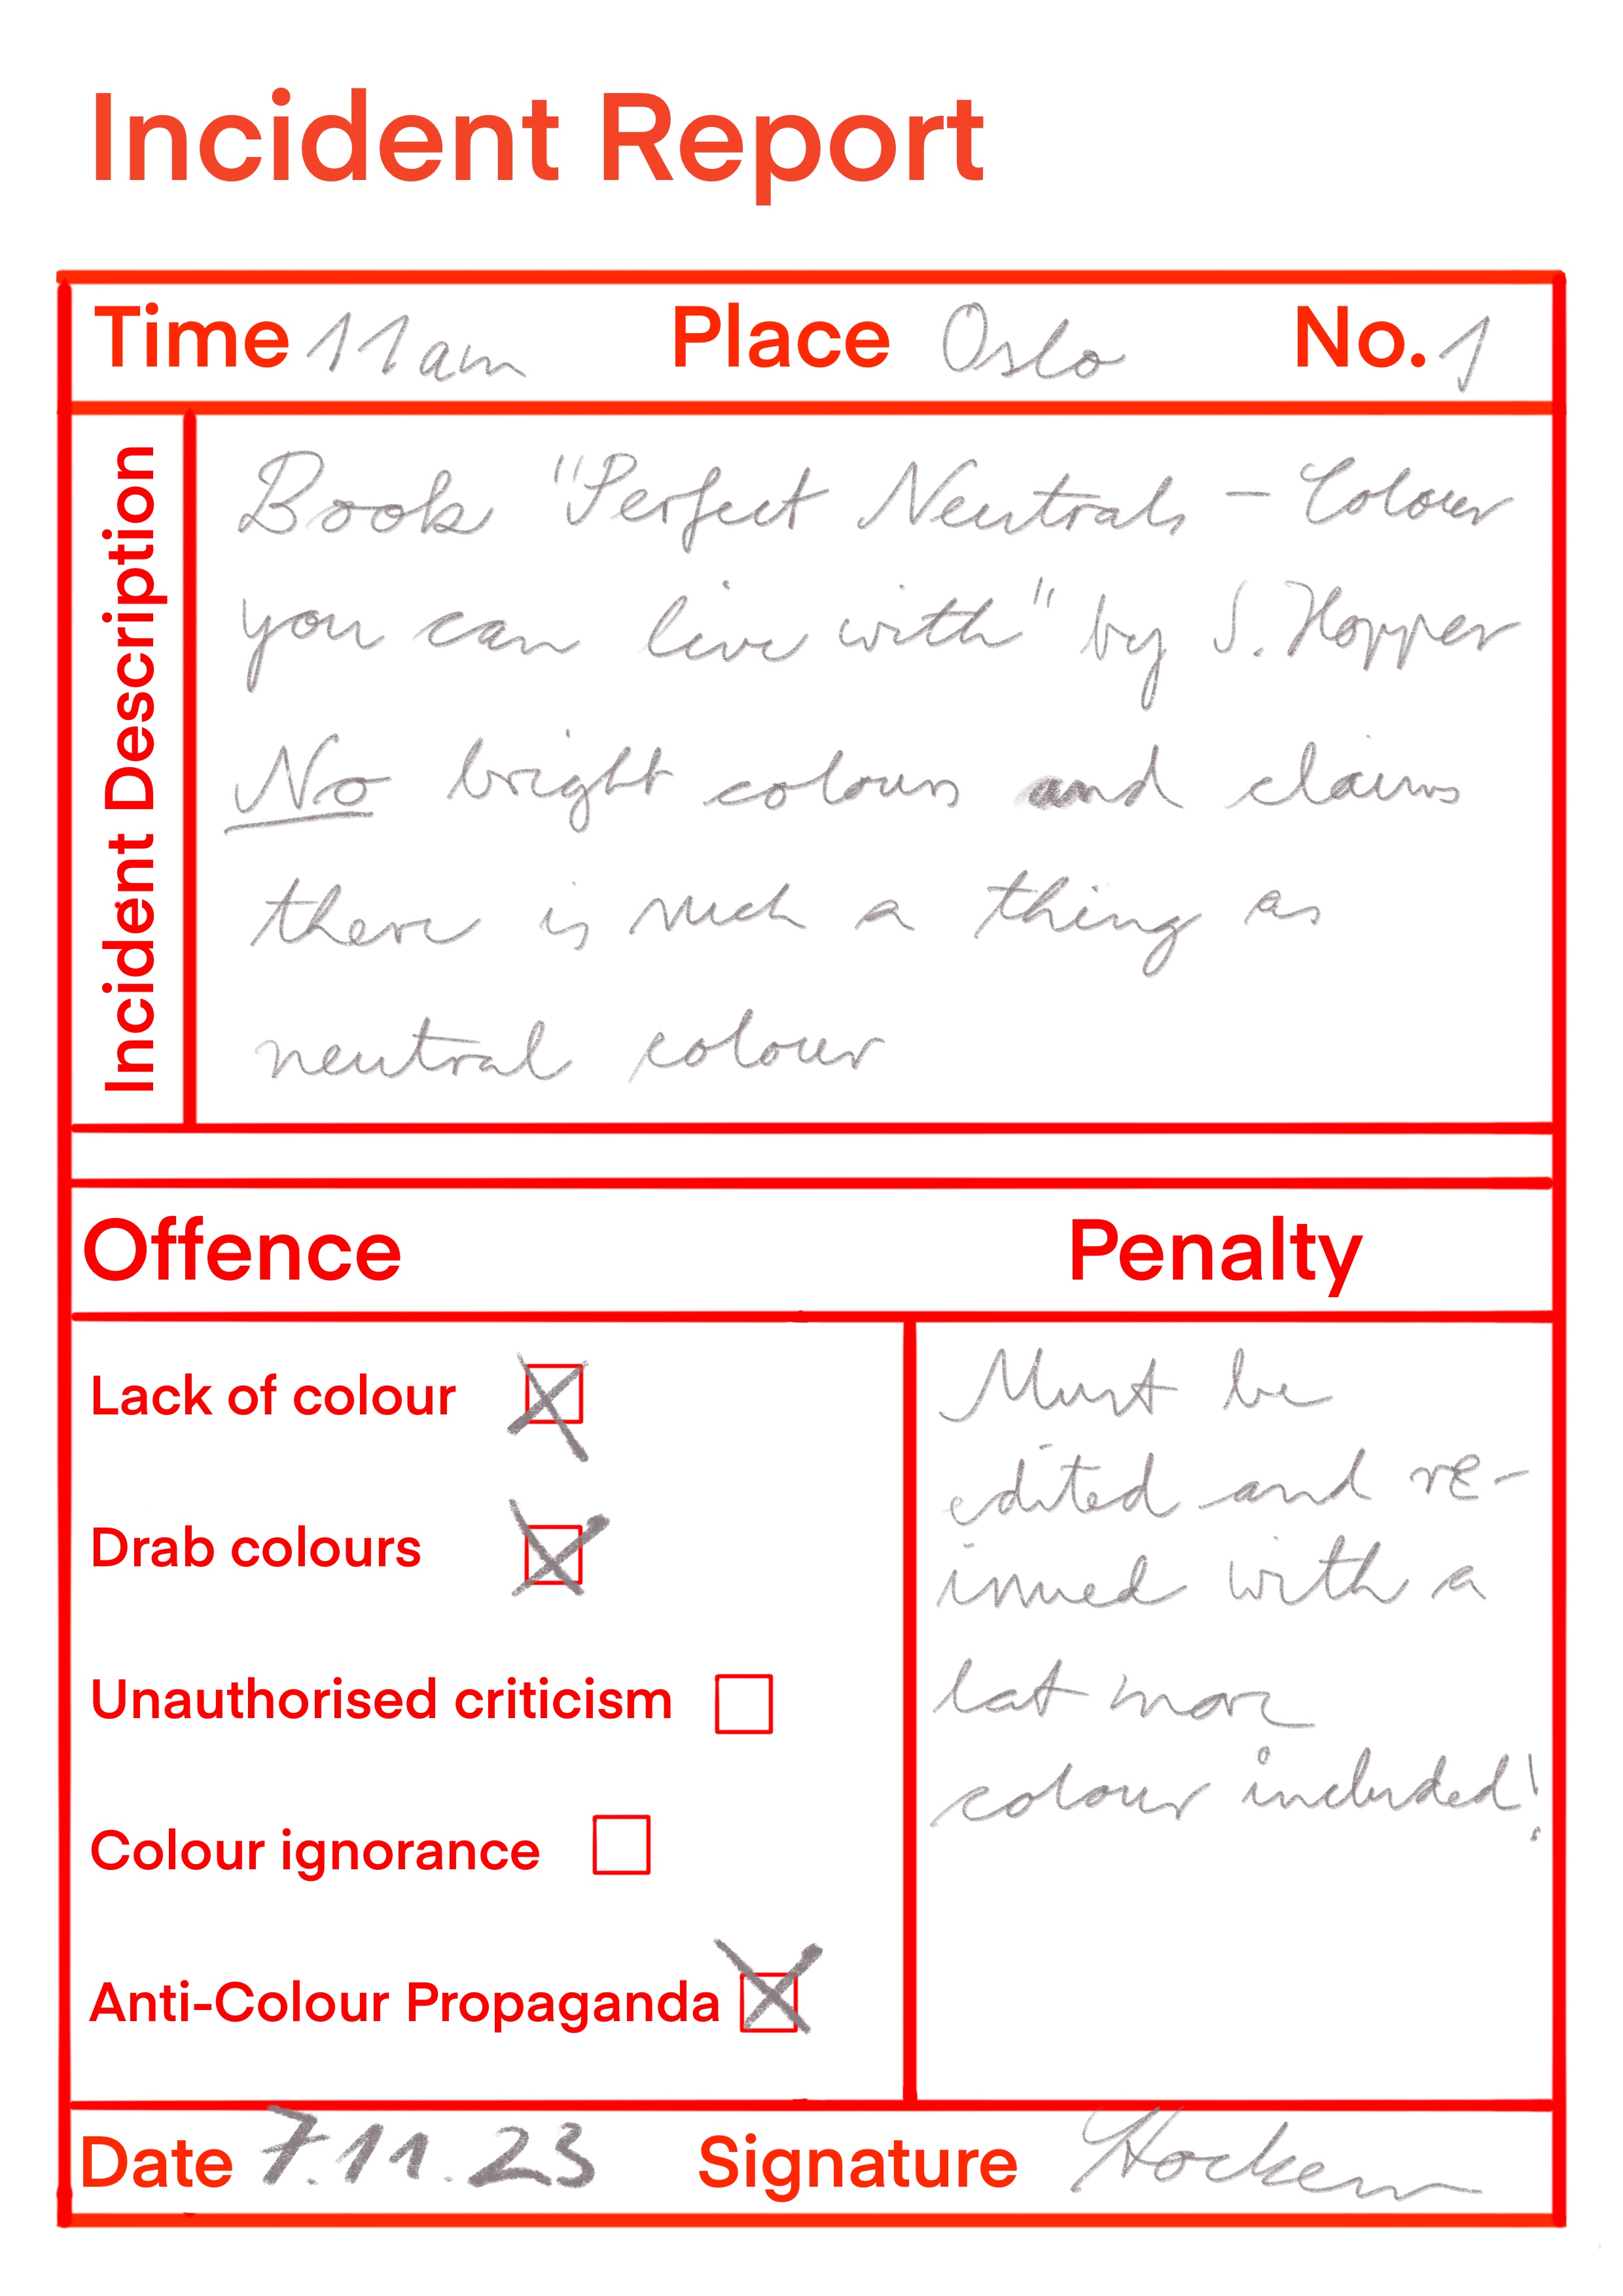 Incident Report
Time 11am Place Oslo No. 1
Incident Description
Book "Perfect Neutrals – Colour
you can live with" by S. Hopper
No bright colours and claims
there is such a thing as
neutral colour
Offence Penalty
Lack of colour
Drab colours
Unauthorised criticism
Colour ignorance
Anti-Colour Propaganda
Must be
edited and re-
issued with a
lot more
colour included!
Date 7.11.23 Signature